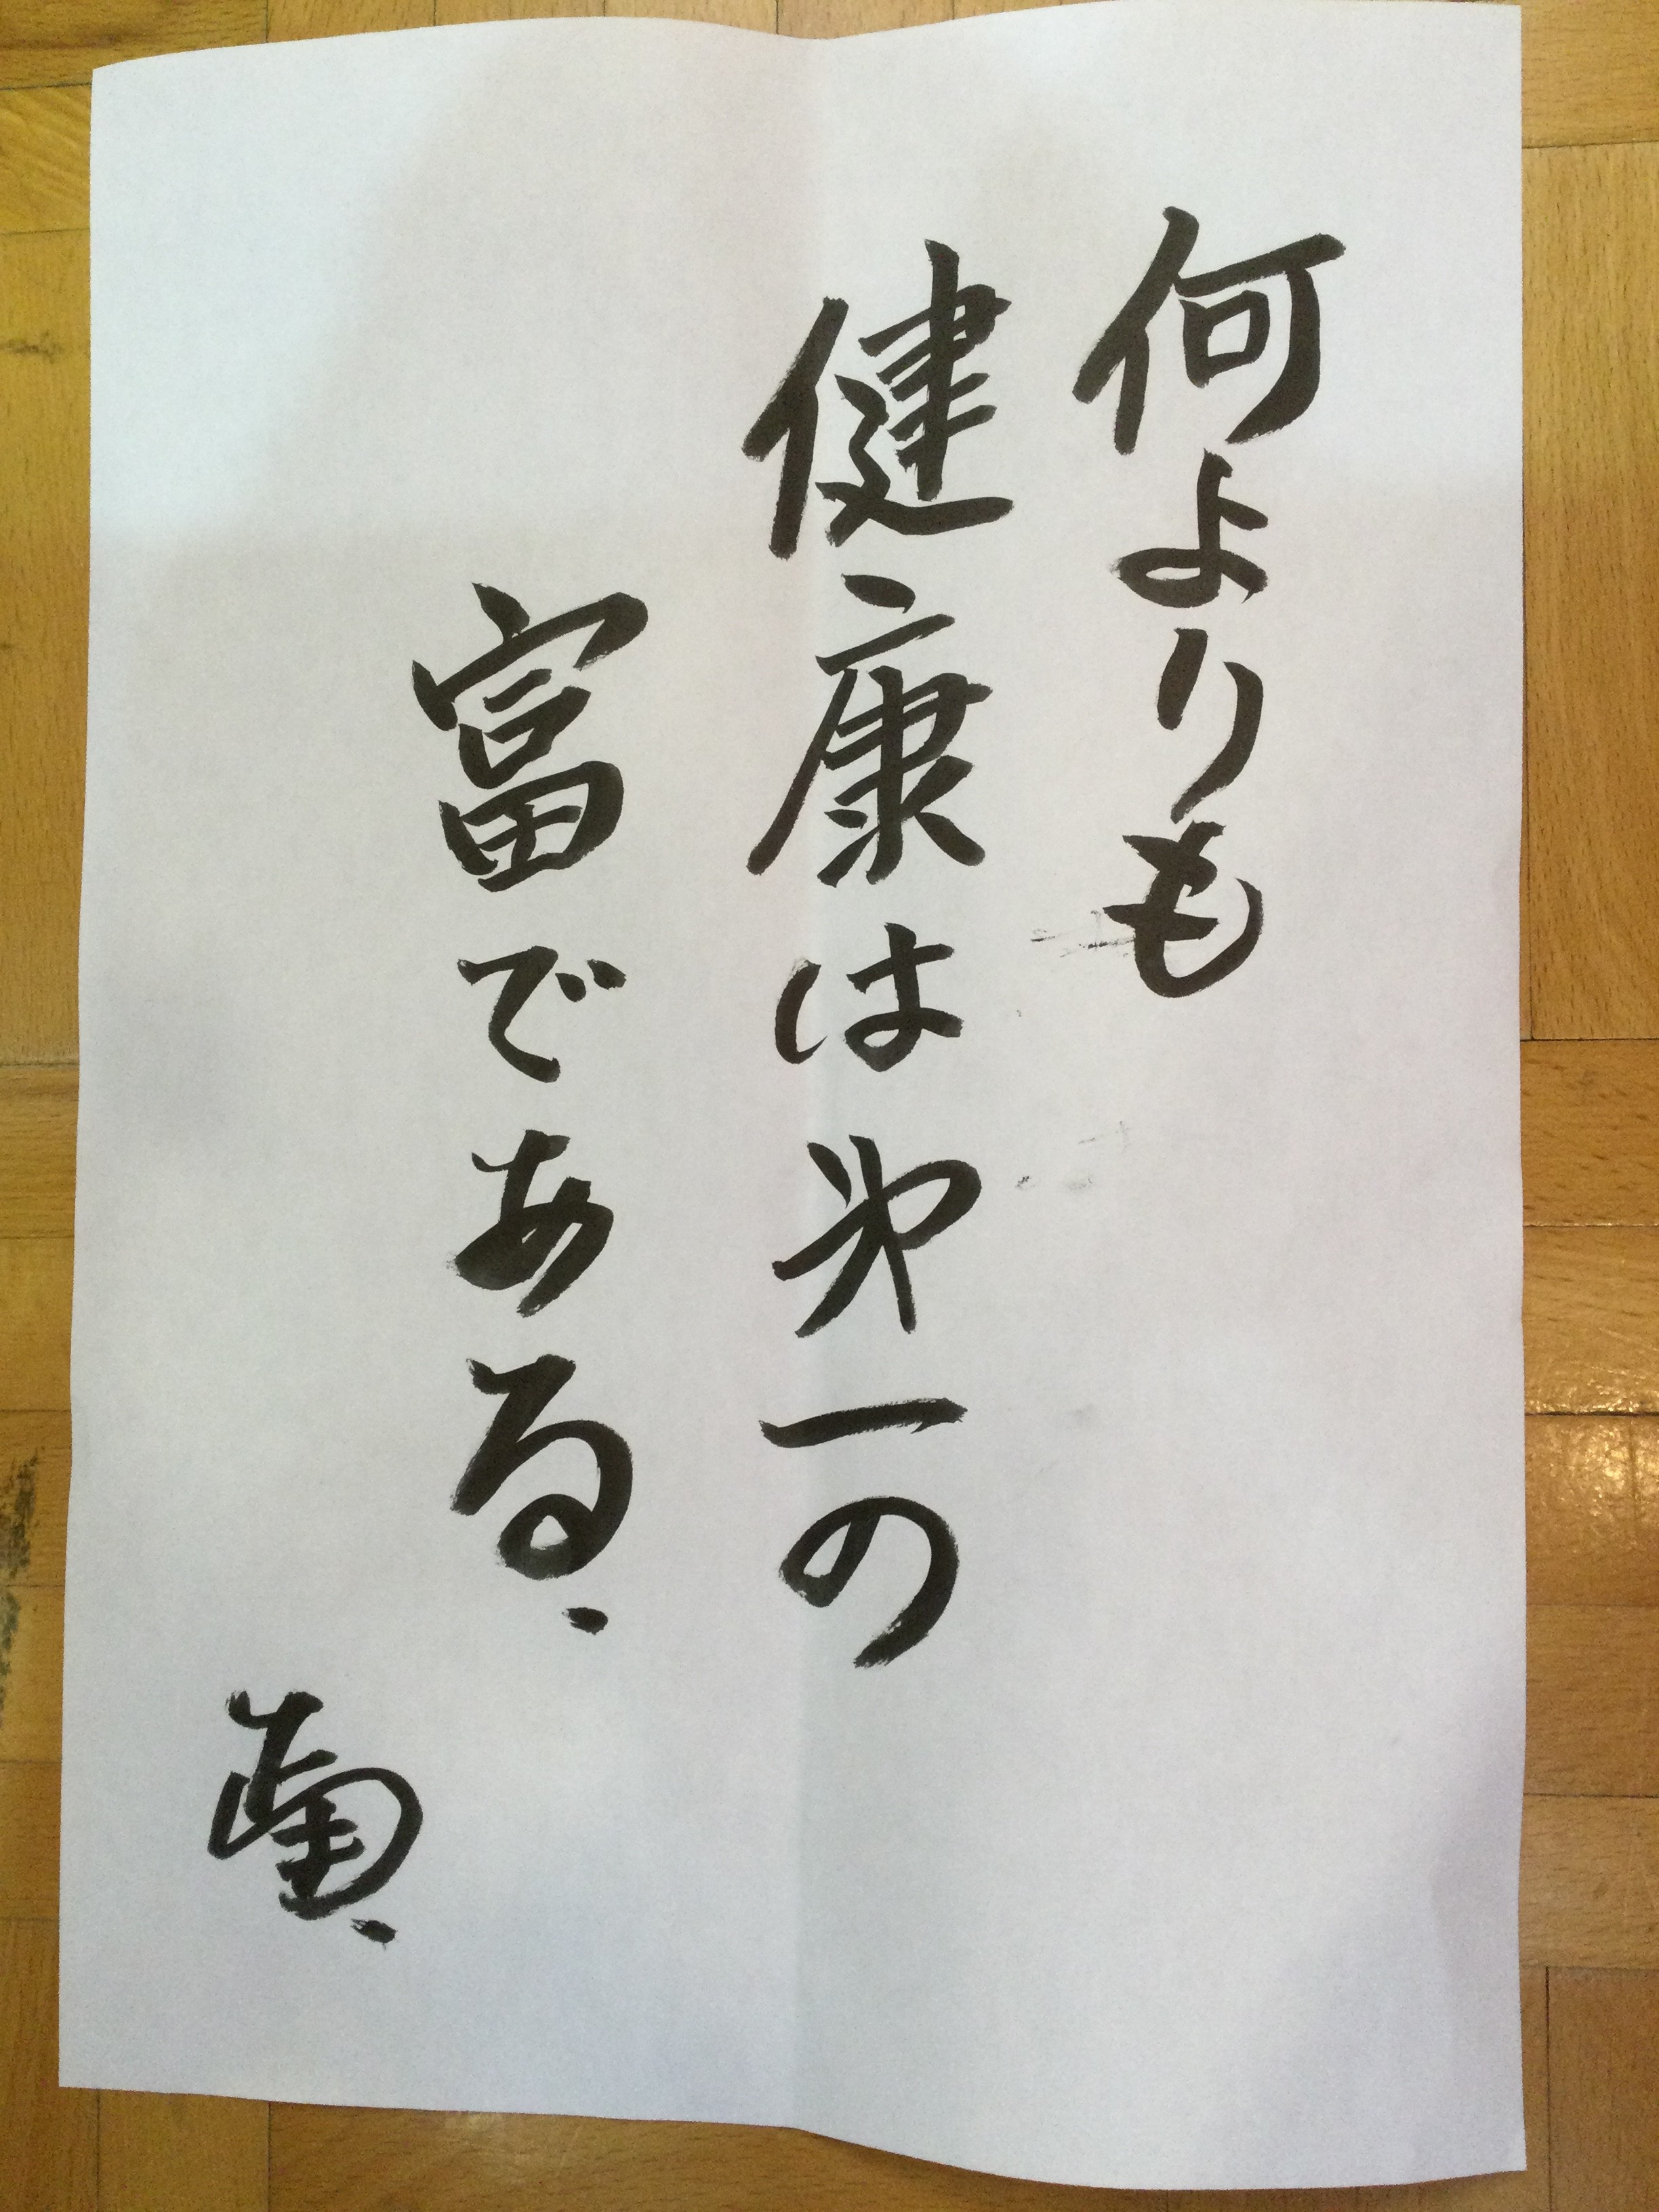 何よりも
健康は㐧一の
富である、
蘭、